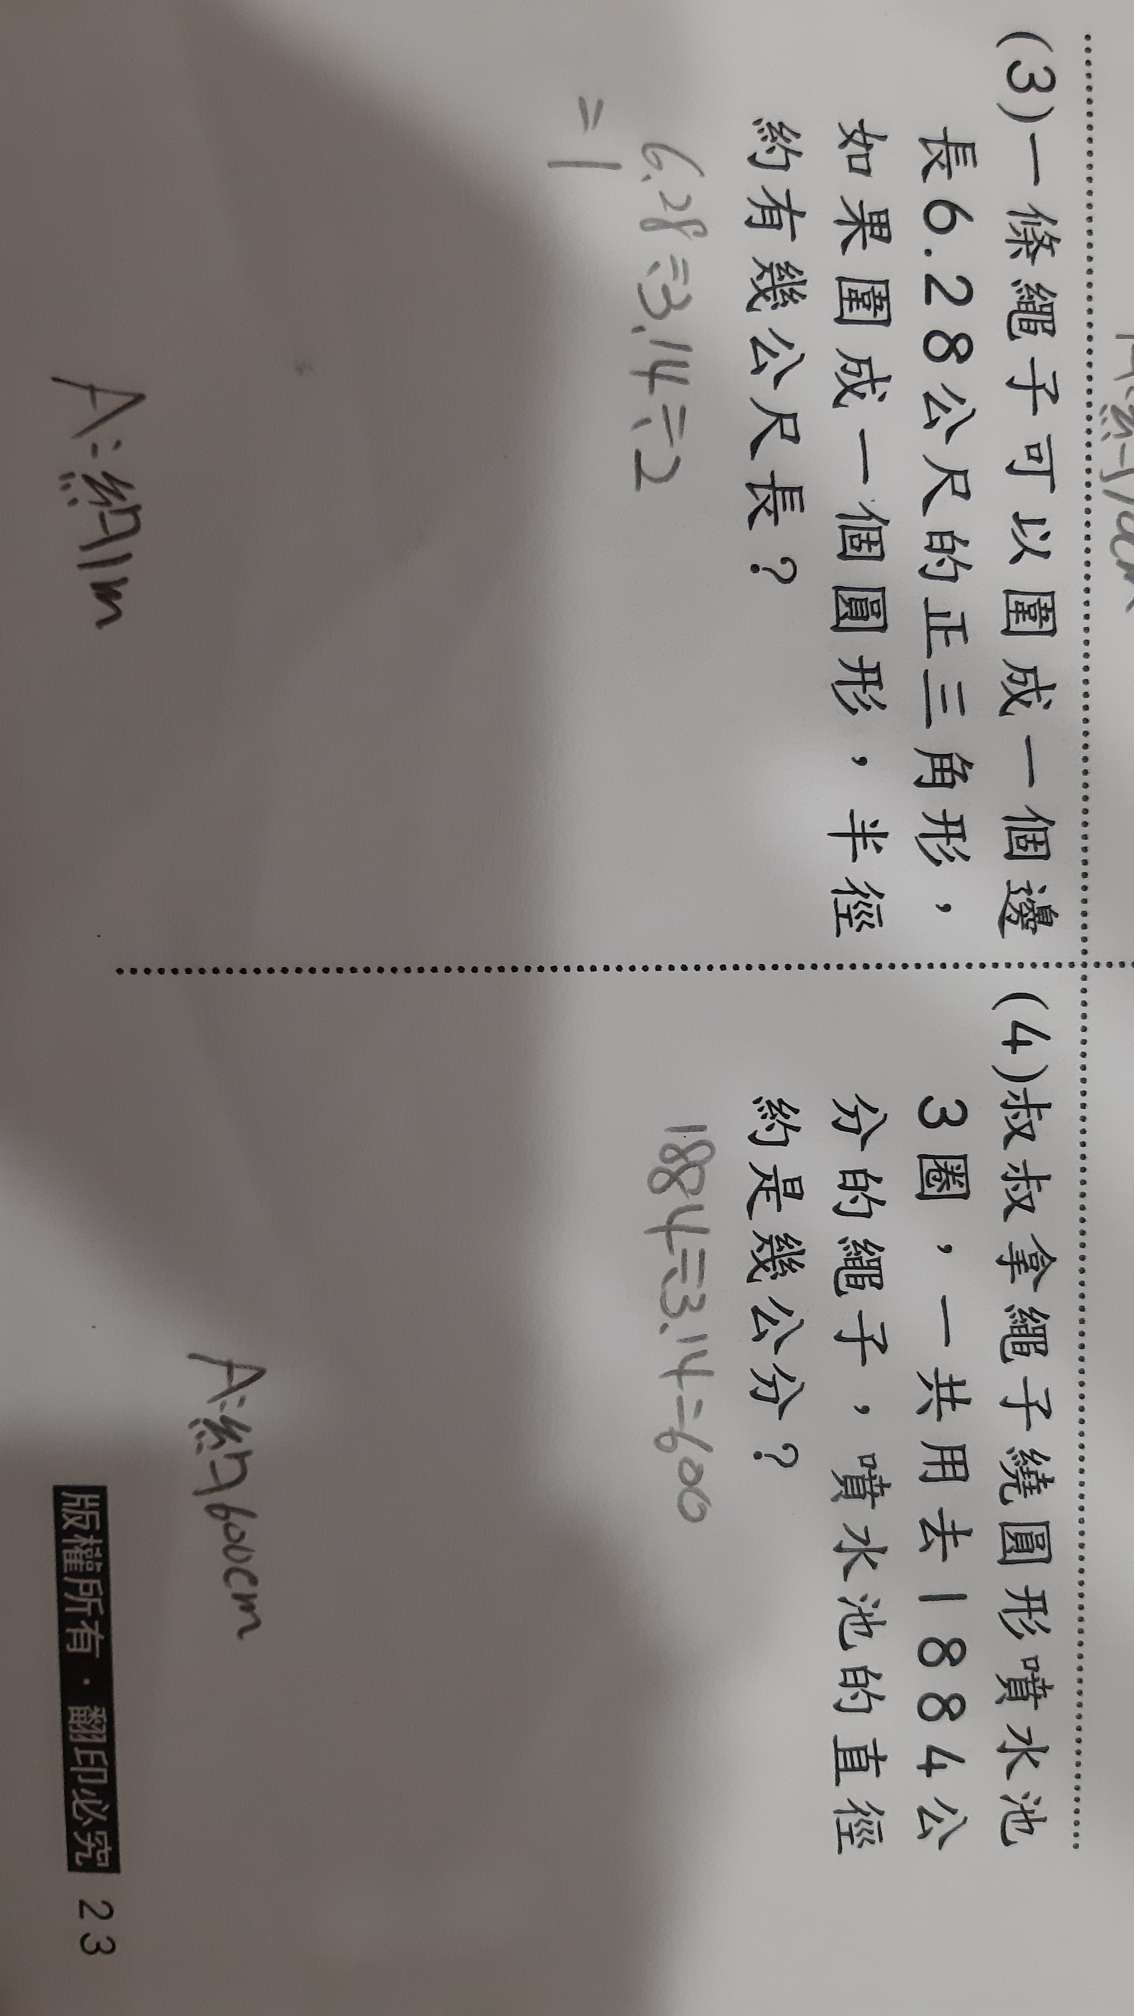 (3)一條繩子可以圍成一個邊
長6.28公尺的正三角形，
如果圍成一個圓形，半徑
約有幾公尺長？
6.28÷3.14÷2
=1
A:約1m
(4)叔叔拿繩子繞圓形噴水池
3圈，一共用去1884公
分的繩子，噴水池的直徑
約是幾公分？
1884÷3.14=600
A:約600cm
版權所有·翻印必究 23